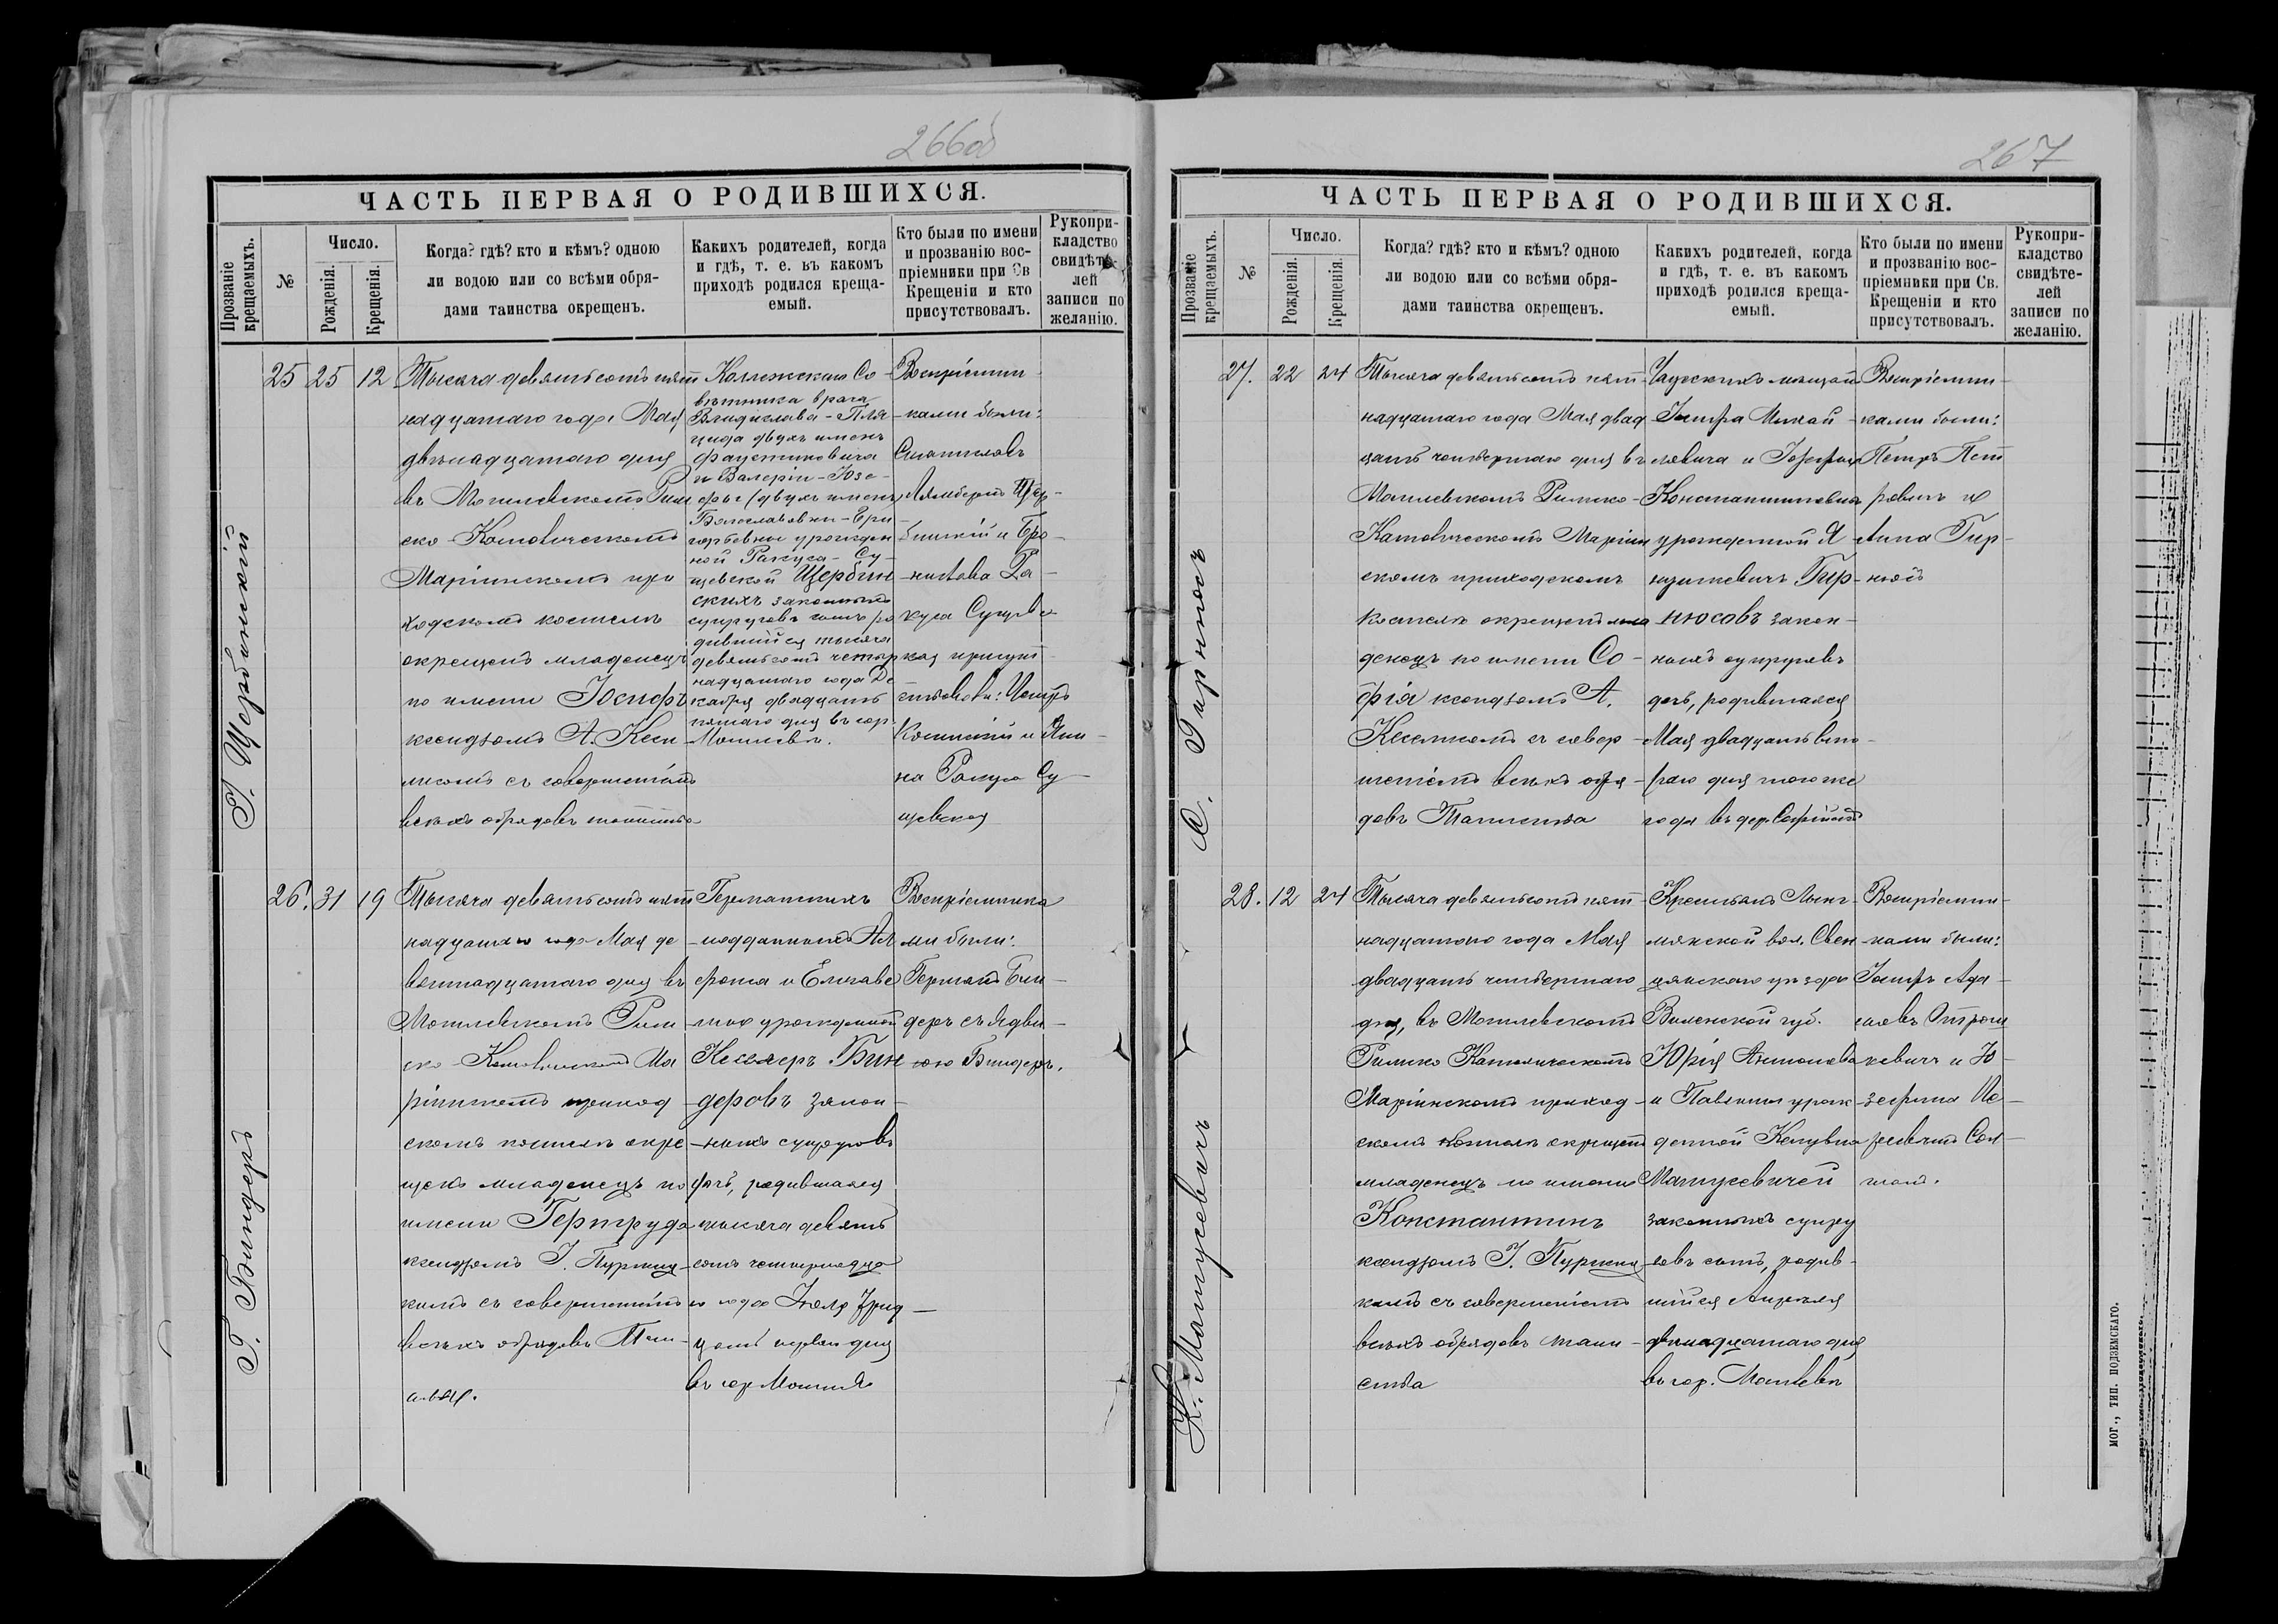 266об
ЧАСТЬ ПЕРВАЯ О РОДИВШИХСЯ.
Прозваніе крещаемыхъ.
№
Число.
Рожденія.
Крещенія.
Когда? гдѣ? кто и кѣмъ? одною
ли водою или со всѣми обря-
дами таинства окрещенъ.
Какихъ родителей, когда
и гдѣ, т. е. въ какомъ
приходѣ родился креща-
емый.
Кто были по имени
и прозванію вос-
пріемники при Св
Крещеніи и кто
присутствовалъ.
Рукопри-
кладство
свидѣте-
лей
записи по
желанію.
І. Щербинскій
25 25 12
Тысяча девятьсотъ пят
надцатаго года Мая
двѣнадцатаго дня
въ Могилевскомъ Рим
ско-Католическомъ
Маріинскомъ при
ходскомъ костелѣ
окрещенъ младенецъ
по имени Іосифъ
ксендзомъ А. Кесм
инсомъ съ совершеніемъ
всѣхъ обрядовъ таинства
Коллежскаго Со-
вѣтника врача
Владислава-Пля
цида двухъ именъ
Фаустиновича
и Валеріи-Юзе-
фы (двухъ именъ)
Болеславовны-Гри
горьевны урожден
ной Ракуса-Су-
щевской Щербин
скихъ законныхъ
супруговъ сынъ ро
дившійся тысяча
девятьсотъ четыр
надцатаго года Де
кабря двадцать
пятаго дня въ гор.
Могилевѣ.
Воспріемни-
ками были:
Станиславъ
Ламбертъ Щер-
бинскій и Бро-
нислава Ра-
куса Сущевс
кая присут-
ствовали:
и Яни-
на Ракуса Су
щевская
Г. Биндеръ
26. 31 19
Тысяча девятьсотъ пят
надцатаго года Мая де
вятнадцатаго дня въ
Могилевскомъ Рим
ско-Католическомъ Ма
ріинскомъ приход
скомъ костелѣ окре
щенъ младенецъ по
имени Гертруда
ксендзомъ І. Пурниц
комъ съ совершеніемъ
всѣхъ обрядовъ Таин
Германскихъ
подданныхъ Ал
фонса и Елизаве
ты урожденной
Кесслеръ Бин
деровъ закон-
ныхъ супруговъ
дочь, родившаяся
тысяча девять
сотъ четырнадца
го года Іюля трид-
цать перваго дня
въ гор Могилевѣ
Воспріемника
ми были:
Германъ Бин-
деръ съ Ядви-
гою Биндеръ.
267
ЧАСТЬ ПЕРВАЯ О РОДИВШИХСЯ.
Прозваніе крещаемыхъ.
№
Число.
Рожденія.
Крещенія.
Когда? гдѣ? кто и кѣмъ? одною
ли водою или со всѣми обря-
дами таинства окрещенъ.
Какихъ родителей, когда
и гдѣ, т. е. въ какомъ
приходѣ родился креща-
емый.
Кто были по имени
и прозванію вос-
пріемники при Св.
Крещеніи и кто
присутствовалъ.
Рукопри-
кладство
свидѣте-
лей
записи по
желанію.
С. Гирнюсъ
27. 22 24
Тысяча девятьсотъ пят-
надцатаго года Мая двад
цать четвертаго дня въ
Могилевскомъ Римско-
Католическомъ Маріин
скомъ приходскомъ
костелѣ окрещенъ мла
денецъ по имени Со-
фія ксендзомъ А.
Кесминомъ съ совер-
шеніемъ всѣхъ обря-
довъ Таинства
Чаусскихъ мѣщанъ
Іосифа Михай-
ловича и Іозефы
Константиновны
урожденной Я
нушкевичъ Гир-
нюсовъ закон-
ныхъ супруговъ
дочь, родившаяся
Мая двадцать вто-
раго дня того же
года въ дер.
Воспріемни-
ками были:
Петръ Пет
ровичъ и
Анна Гир-
нюсъ
К. Матусевичъ
28. 12 24
Тысяча девятьсотъ пят-
надцатаго года Мая
двадцать четвертаго
дня, въ Могилевскомъ
Римско Католическомъ
Маріинскомъ приход-
скомъ костелѣ окрещенъ
младенецъ по имени
Константинъ
ксендзомъ І. Пурниц
комъ съ совершеніемъ
всѣхъ обрядовъ таин-
ства
Крестьянъ Лынг-
мянской вол. Свен
цянскаго уѣзда
Виленской губ.
Юрія Антонова
и Павлины урож-
денной Кепувна
Матусевичей
законныхъ супру
говъ сынъ, родив-
шійся Апрѣля
двѣнадцатаго дня
въ гор. Могилевѣ
Воспріемни-
ками были:
Іосифъ Ада-
мовъ
кевичъ и Ю
зефина
МОГ., ТИП. ПОДЗЕМСКАГО.